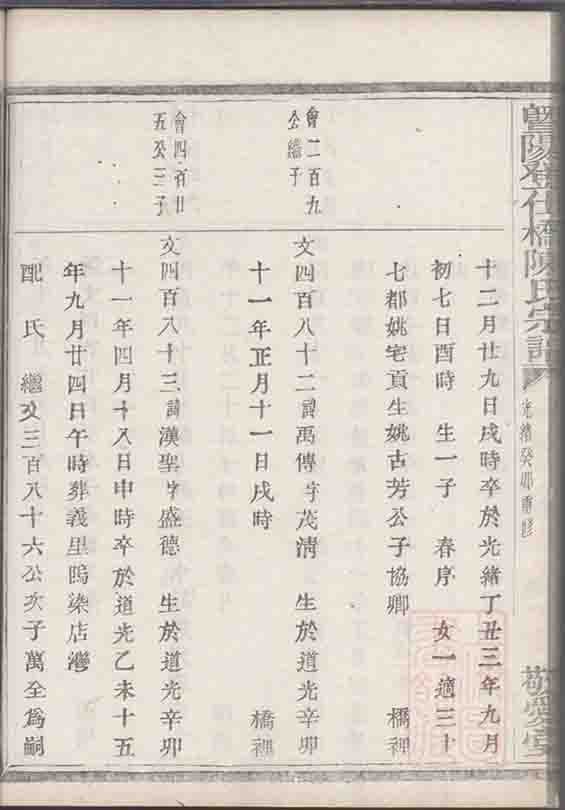 暨陽登仕橋陳氏宗譜
光緒癸卯重修
敬愛堂
十二月廿九日戌時卒於光緒丁丑三年九月
初七日酉時 生一子 春序 女一適三十
七都姚宅貢生姚古芳公子協卿 橋裡
會二百九
公繼子
文四百八十二 諱禹傳字茂清 生於道光辛卯
十一年正月十一日戌時 橋裡
會四百廿
五癸三子
文四百八十三 諱漢聖字盛德 生於道光辛卯
十一年四月十八日申時卒於道光乙未十五
年九月廿四日午時葬義里塢染店灣
配 氏 繼文三百八十六公次子萬全為嗣